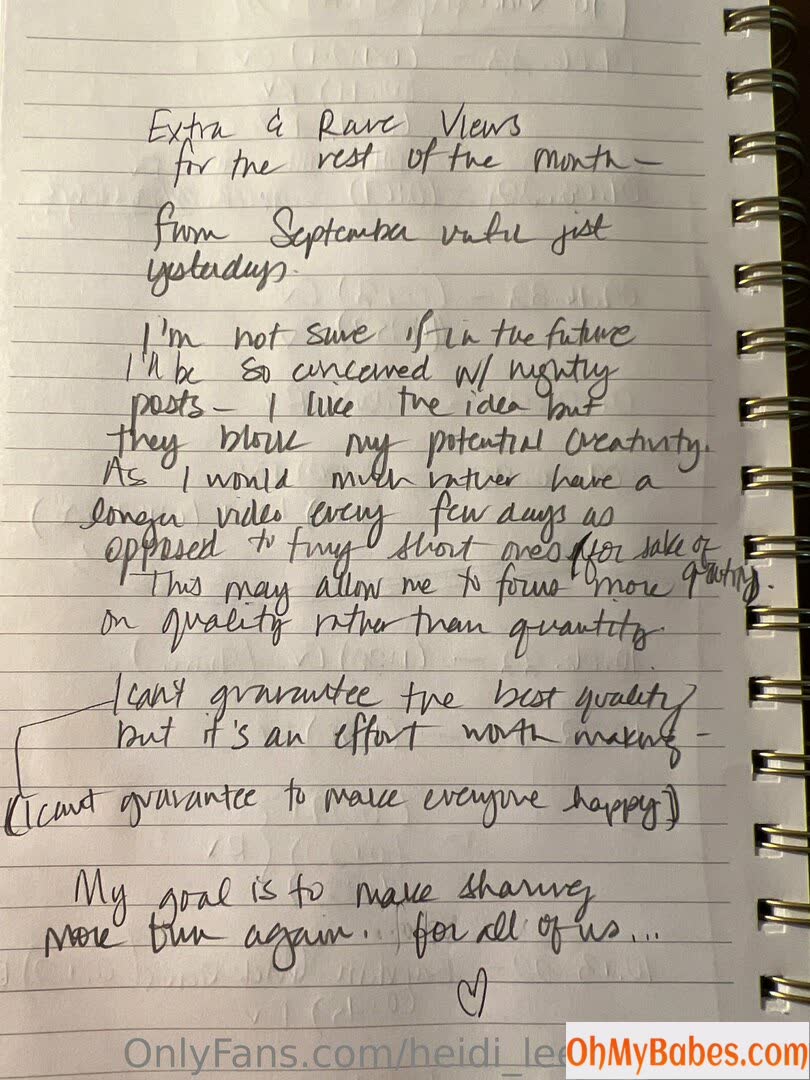 Extra & Rare Views
for the rest of the month –
from September until just
yesterday.
I'm not sure if in the future
I'll be so concerned w/ nightly
posts – I like the idea but
they block my potential creativity.
As I would much rather have a
longer video every few days as
opposed to tiny short ones for sake of
This may allow me to focus more
on quality rather than quantity.
I can't guarantee the best quality
but it's an effort worth making –
(I can't guarantee to make everyone happy)
My goal is to make sharing
more fun again... for all of us...
OnlyFans.com/heidi_lee
OhMyBabes.com